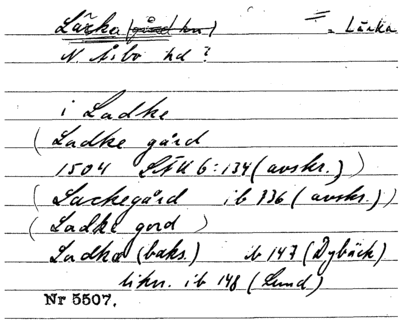 Lärka (gård hn) = . Lärka
N Åsbo hd ?
i Ladke
( Ladke gård
1504 LÅU 6:134 (avskr.) )
( Lackegård ib 136 (avskr.) )
( Ladke gord )
Ladka (baks.) ib 147 (Dybäck)
likn. ib 148 (Lund)
Nr 5507.